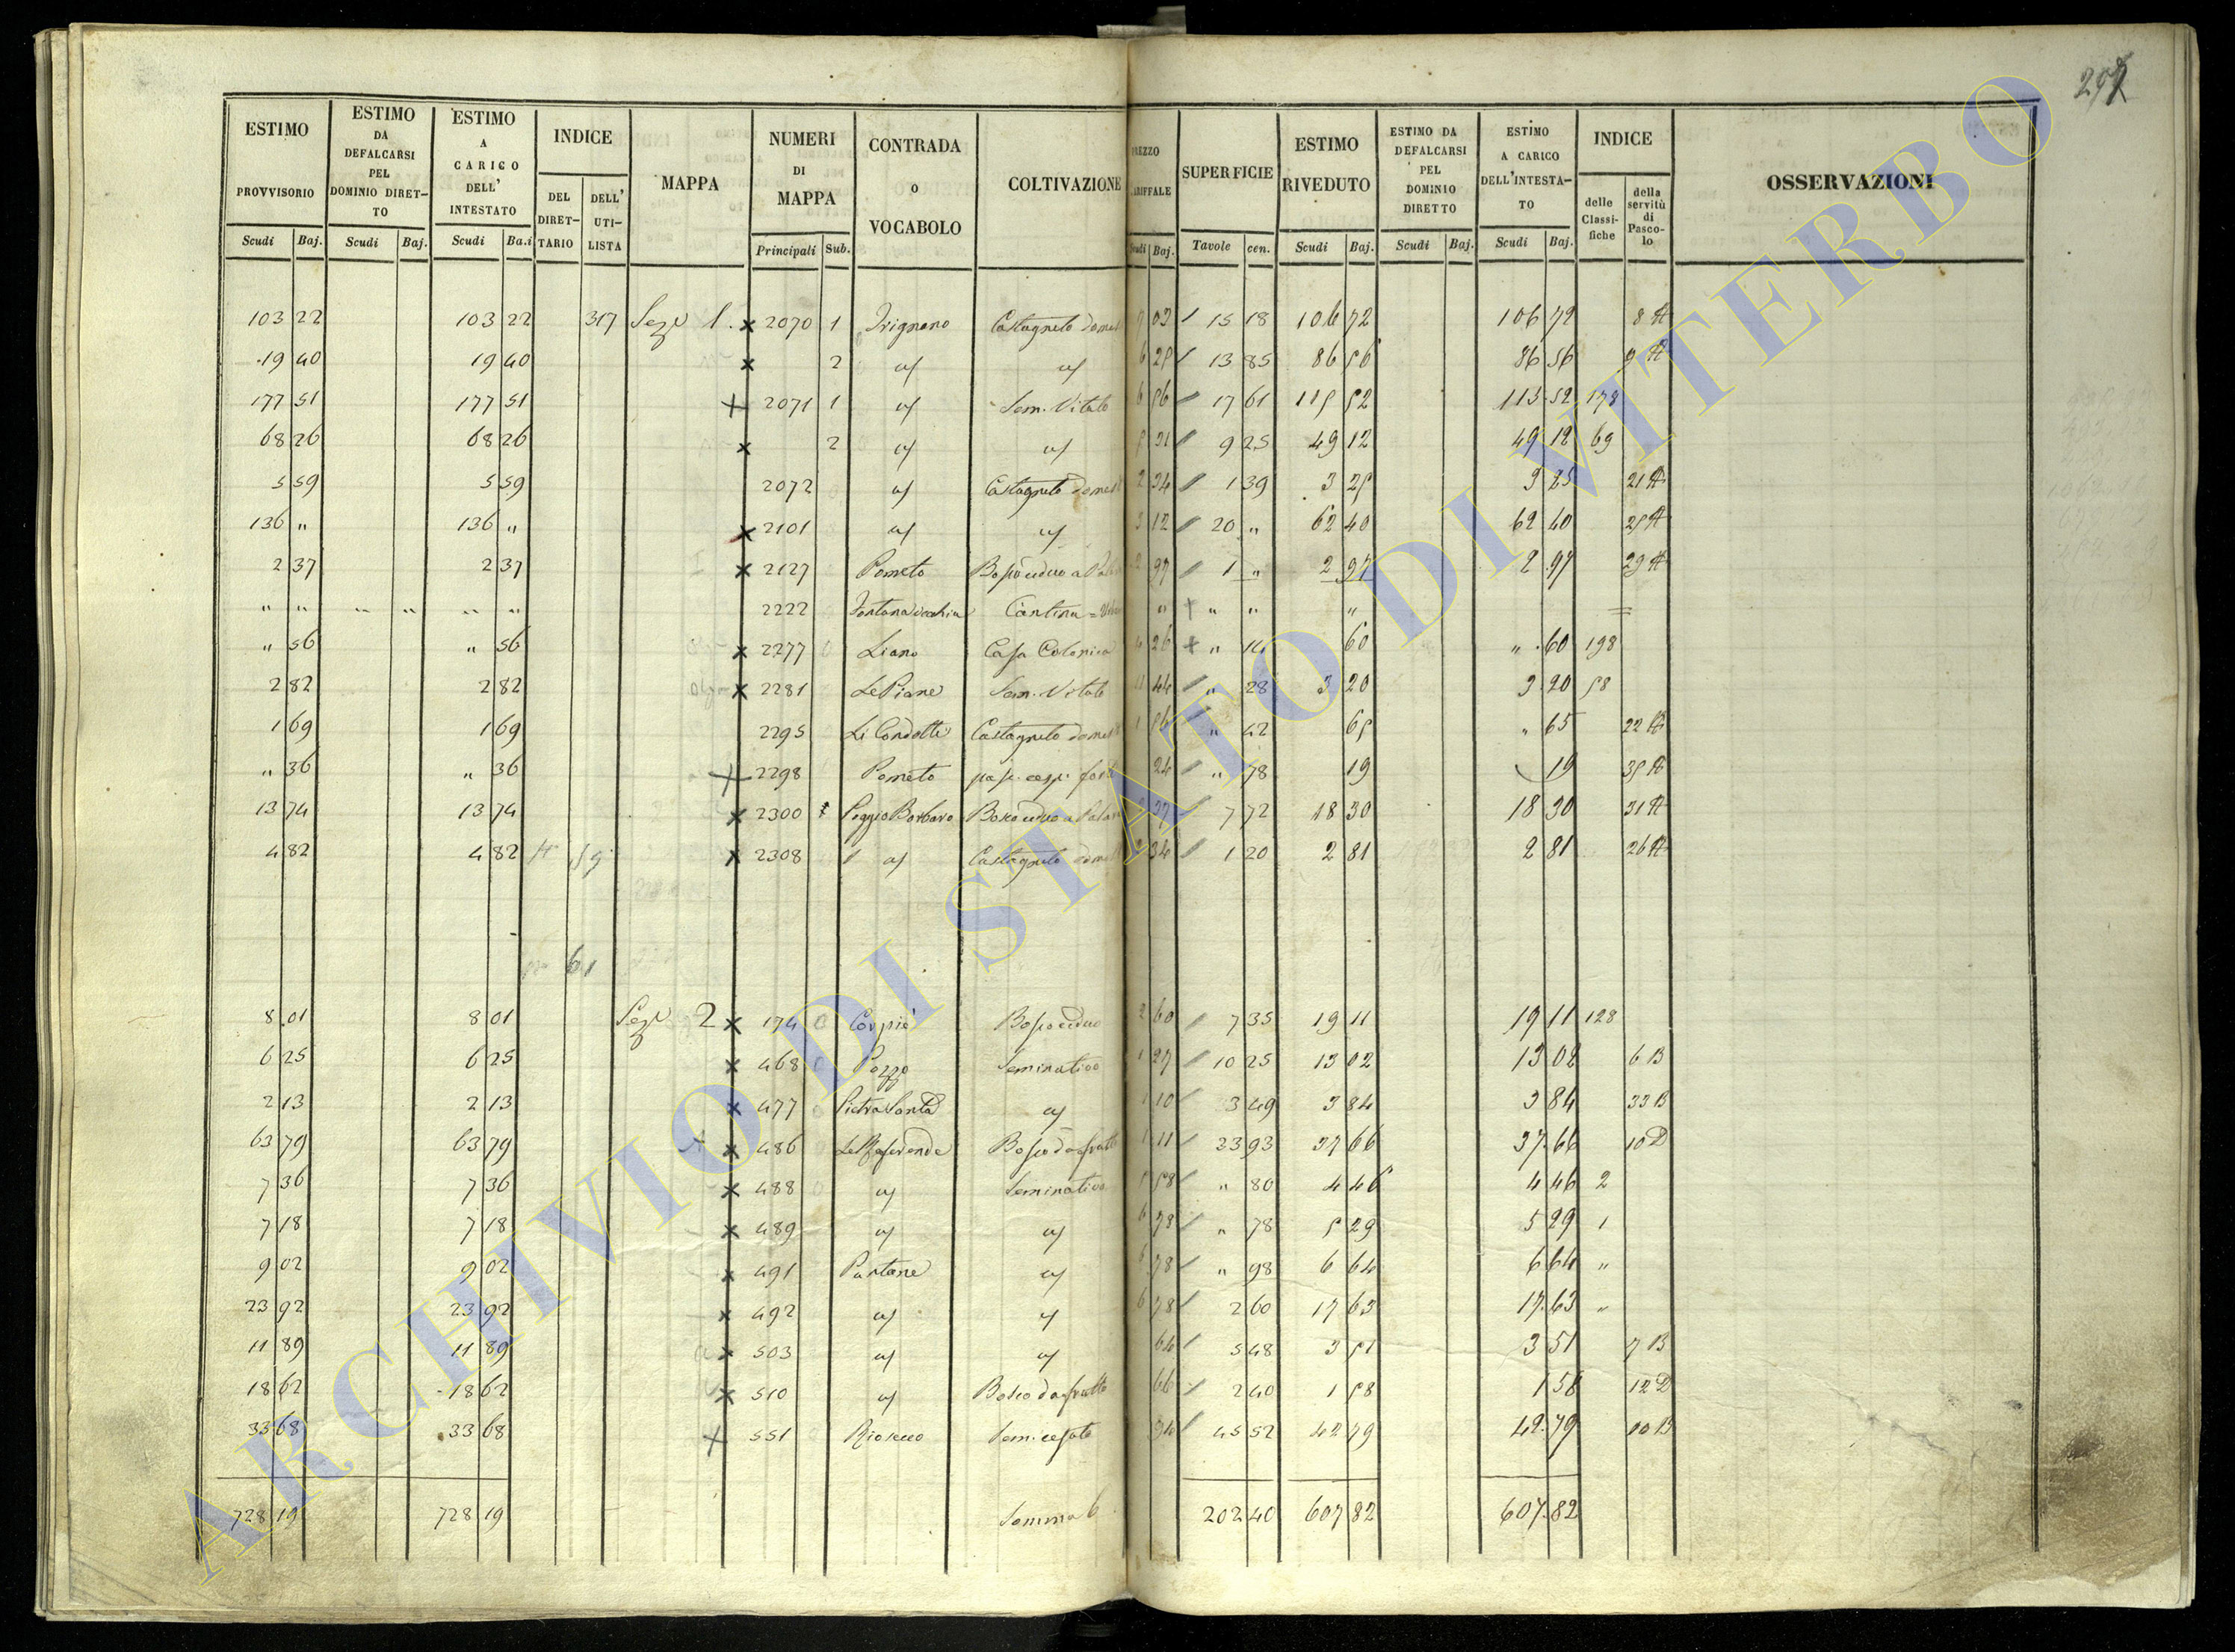 297
ESTIMO PROVVISORIO Scudi Baj. | ESTIMO DA DEFALCARSI PEL DOMINIO DIRETTO Scudi Baj. | ESTIMO A CARICO DELL' INTESTATO Scudi Ba.i | INDICE DEL DIRETTARIO DELL' UTILISTA | MAPPA | NUMERI DI MAPPA Principali Sub. | CONTRADA O VOCABOLO | COLTIVAZIONE | SUPERFICIE Tavole cen. | ESTIMO RIVEDUTO Scudi Baj. | ESTIMO DA DEFALCARSI PEL DOMINIO DIRETTO Scudi Baj. | ESTIMO A CARICO DELL'INTESTATO Scudi Baj. | INDICE delle Classifiche della servitù di Pascolo | OSSERVAZIONI
103 22 103 22 317 Sez. 1. x 2070 1 Trignano Castagneto 03 15 18 106 72 106 72 8 A
19 40 19 40 x 2 13 85 86 56 86 56 9 A
177 51 177 51 x 2071 1 Sem. Vitato 6 56 17 61 115 52 115 52 178
68 26 68 26 x 2 5 31 9 25 49 12 49 12 69
5 59 5 59 2072 Castagneto 2 34 1 39 3 25 3 25 21 A
136 " 136 " x 2101 3 12 20 " 62 40 62 40 25 A
2 37 2 37 x 2127 Pometo Bosco ceduo a 2 97 1 " 2 97 2 97 29 A
" " " " " " 2222 Fontana vecchia Cantina " " " "
" 56 " 56 x 2277 Liano Casa Colonica 4 26 " 14 60 " 60 198
2 82 2 82 x 2281 Le Piane Sem. Vitato 11 44 " 28 3 20 3 20 58
1 69 1 69 2295 Li Condotti Castagneto 1 56 " 42 65 " 65 22 A
" 36 " 36 x 2298 Pometo 24 " 78 19 19 35 A
13 74 13 74 x 2300 Poggio Barbaro Bosco ceduo a 2 37 7 72 18 30 18 30 31 A
4 82 4 82 59 x 2308 Castagneto 2 34 1 20 2 81 2 81 26 A
61
8 01 8 01 Sez. 2 x 174 Carpiè Bosco ceduo 2 60 7 35 19 11 19 11 128
6 25 6 25 x 468 Pozzo Seminativo 1 27 10 25 13 02 13 02 6 B
2 13 2 13 x 477 Pietra Santa 1 10 3 49 3 84 3 84 33 B
63 79 63 79 x 486 Bosco da frutto 1 11 33 93 37 66 37 66 10 D
7 36 7 36 x 488 Seminativo 5 58 " 80 4 46 4 46 2
7 18 7 18 x 489 6 78 " 78 5 29 5 29 1
9 02 9 02 x 491 Pantane 6 78 " 98 6 64 6 64 "
23 92 23 92 x 492 6 78 2 60 17 63 17 63 "
11 89 11 89 x 503 64 5 48 3 51 3 51 7 B
18 62 18 62 x 510 Bosco da frutto 66 2 40 1 58 1 58 12 D
33 68 33 68 x 551 Riosecco 94 45 52 42 79 42 79 10 B
728 19 728 19 Somma 202 40 607 82 607 82
ARCHIVIO DI STATO DI VITERBO